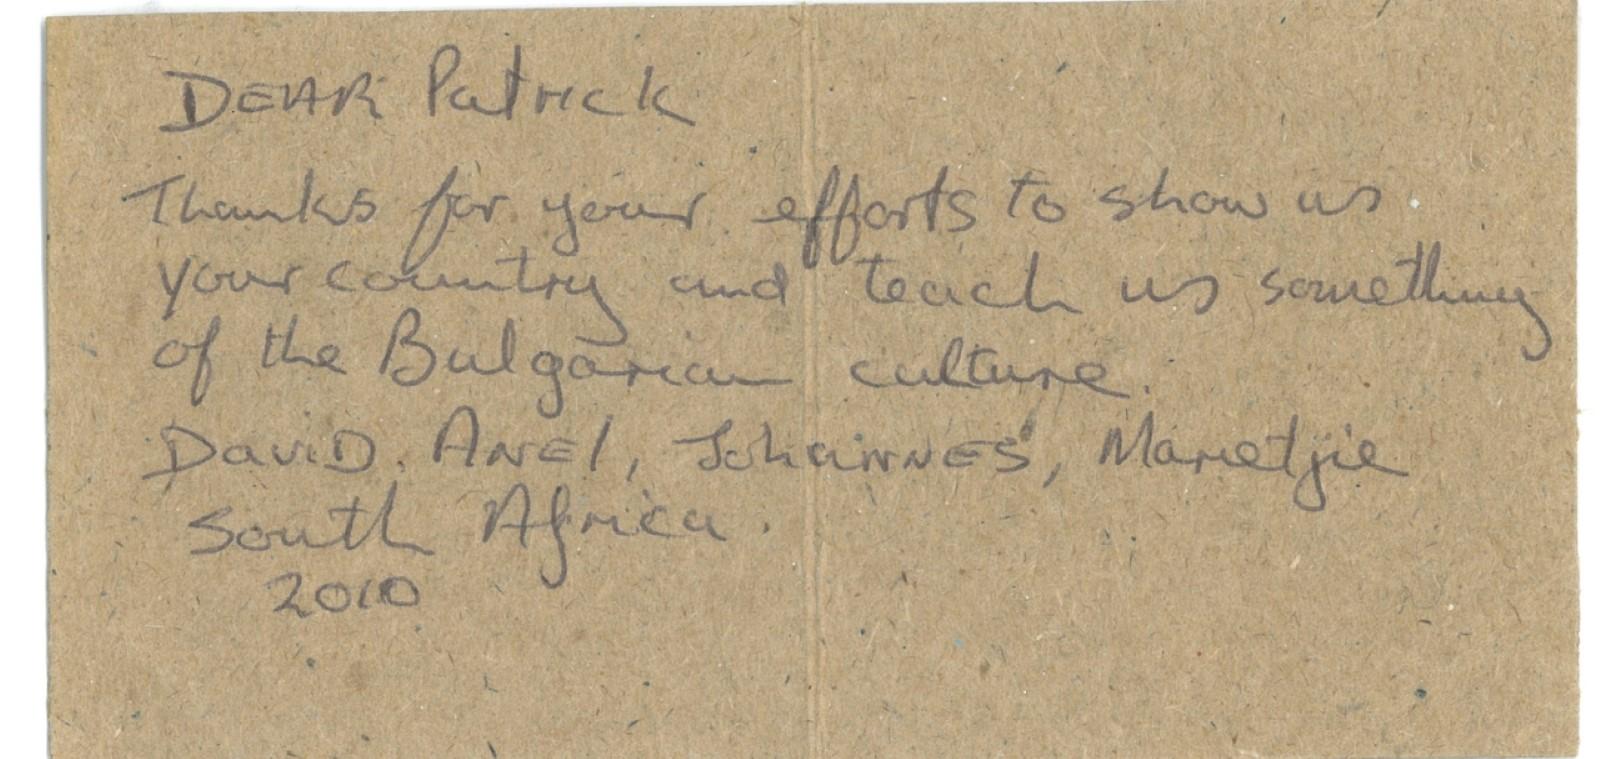 DEAR Patrick
Thanks for your efforts to show us
your country and teach us something
of the Bulgarian culture.
David, Anel, Johannes, Marietjie
South Africa.
2010